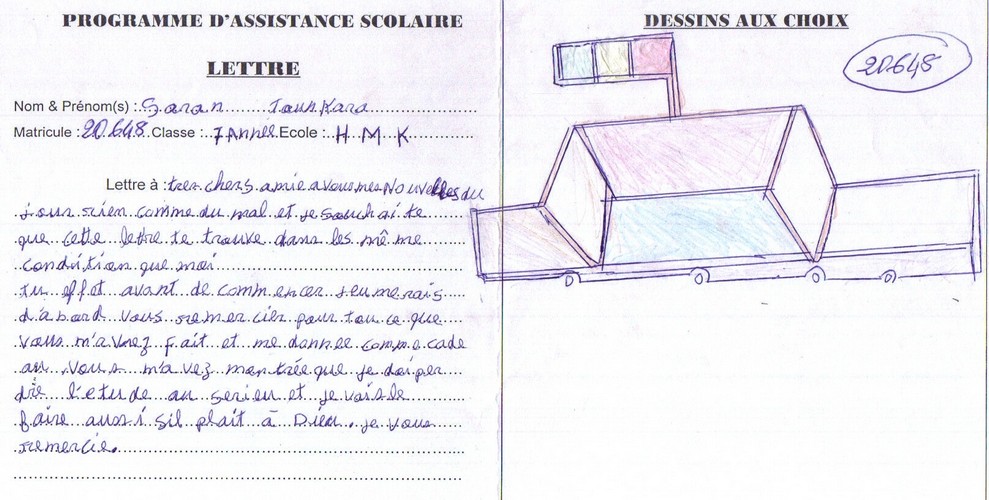 PROGRAMME D'ASSISTANCE SCOLAIRE
LETTRE
Nom & Prénom(s) : Saran Tounkara
Matricule : 20648 Classe : 7 Année Ecole : H M K
Lettre à : tres chers amie a vous mes Nouvelles du
jour rien comme du mal et je souhaite
que cette lettre te trouve dans les même
condition que moi
en effet avant de commencer
d'abord vous remercier pour tou ce que
vous m'avez fait et me donnee comme cade
au vous m'avez montrée que je doi pen
dre l'etude au serieu et je vais le
faire aussi s'il plait à Dieu. je vous
remercie.
DESSINS AUX CHOIX
20648